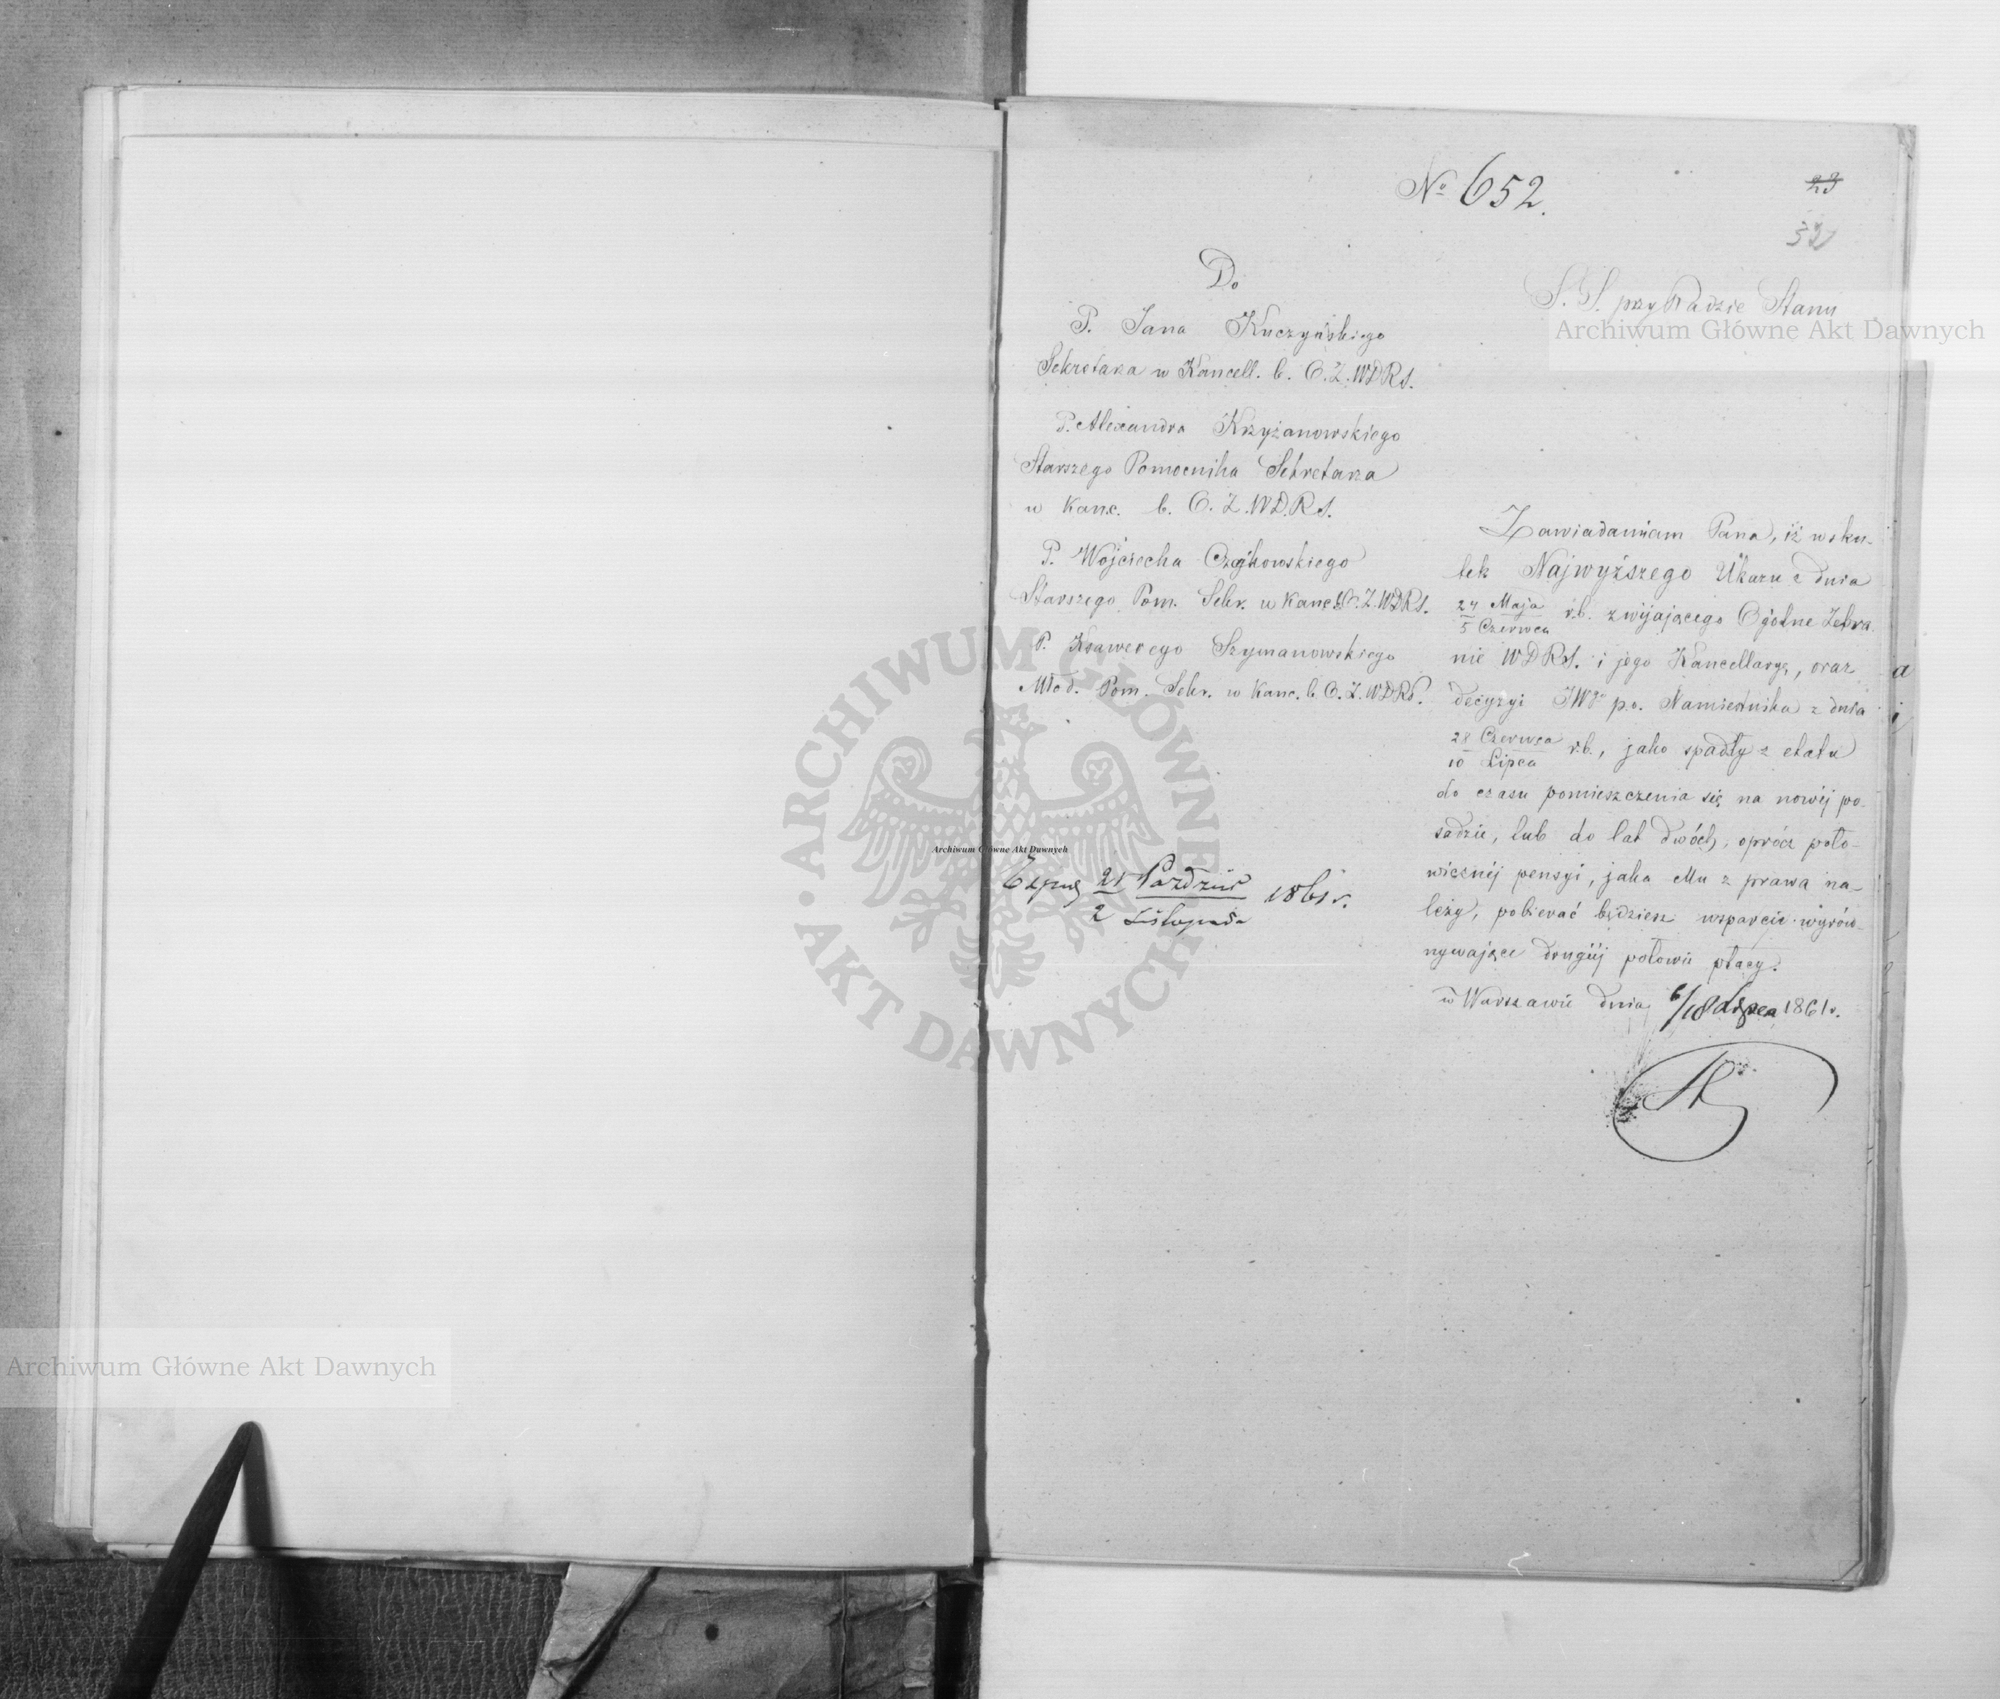 № 652.
23
32
Do
P. Jana Kuczyńskiego
Sekretarza w Kancell. b. O. Z. WDRS.
P. Alexandra Krzyżanowskiego
Starszego Pomocnika Sekretarza
w Kanc. b. O. Z. WD.RS.
P. Wojciecha
Starszego Pom. Sekr. w Kanc. b. O. Z. WDRS.
P. Ksawerego Szymanowskiego
Młod. Pom. Sekr. w Kanc. b. O. Z. WDRS.
21 Paździer
2 Listopada 1861 r.
S. S. przy Radzie Stanu
Zawiadamiam Pana, iż wsku-
tek Najwyższego Ukazu z dnia
24 Maja
5 Czerwca r.b. zwijającego Ogólne Zebra
nie WDRS. i jego Kancellaryę, oraz
decyzyi JWgo p.o. Namiestnika z dnia
28 Czerwca
10 Lipca r.b., jako spadły z etatu
do czasu pomieszczenia się na nowéj po-
sadzie, lub do lat dwóch, oprócz poło-
wicznéj pensyi, jaka Mu z prawa na-
leży, pobierać będziesz wsparcie wyrów-
nywające drugiéj połowie płacy.
w Warszawie dnia 6/18 Lipca 1861 r.
Archiwum Główne Akt Dawnych
ARCHIWUM GŁÓWNE AKT DAWNYCH
Archiwum Główne Akt Dawnych
Archiwum Główne Akt Dawnych